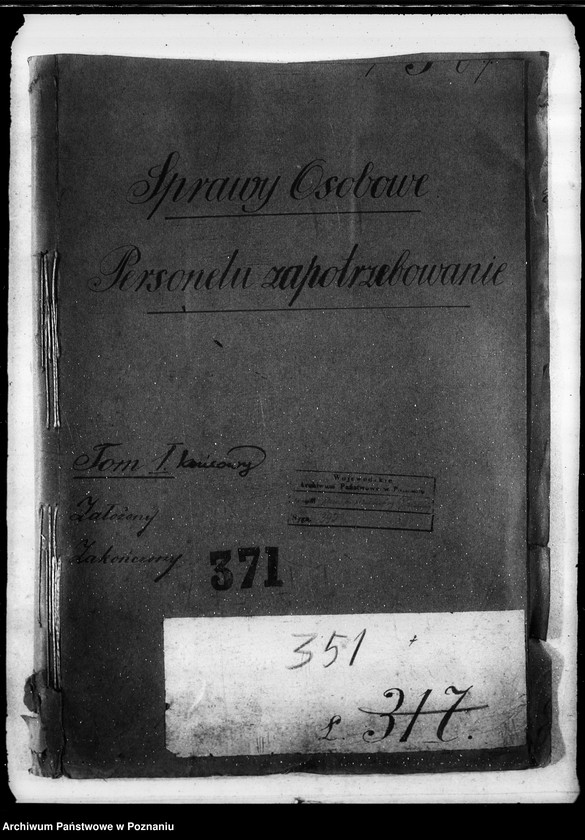 Sprawy Osobowe
Personelu zapotrzebowanie
Tom I. końcowy
Założony
Zakończony
Wojewódzkie
Archiwum Państwowe w Poznaniu
371
351
317.
Archiwum Państwowe w Poznaniu